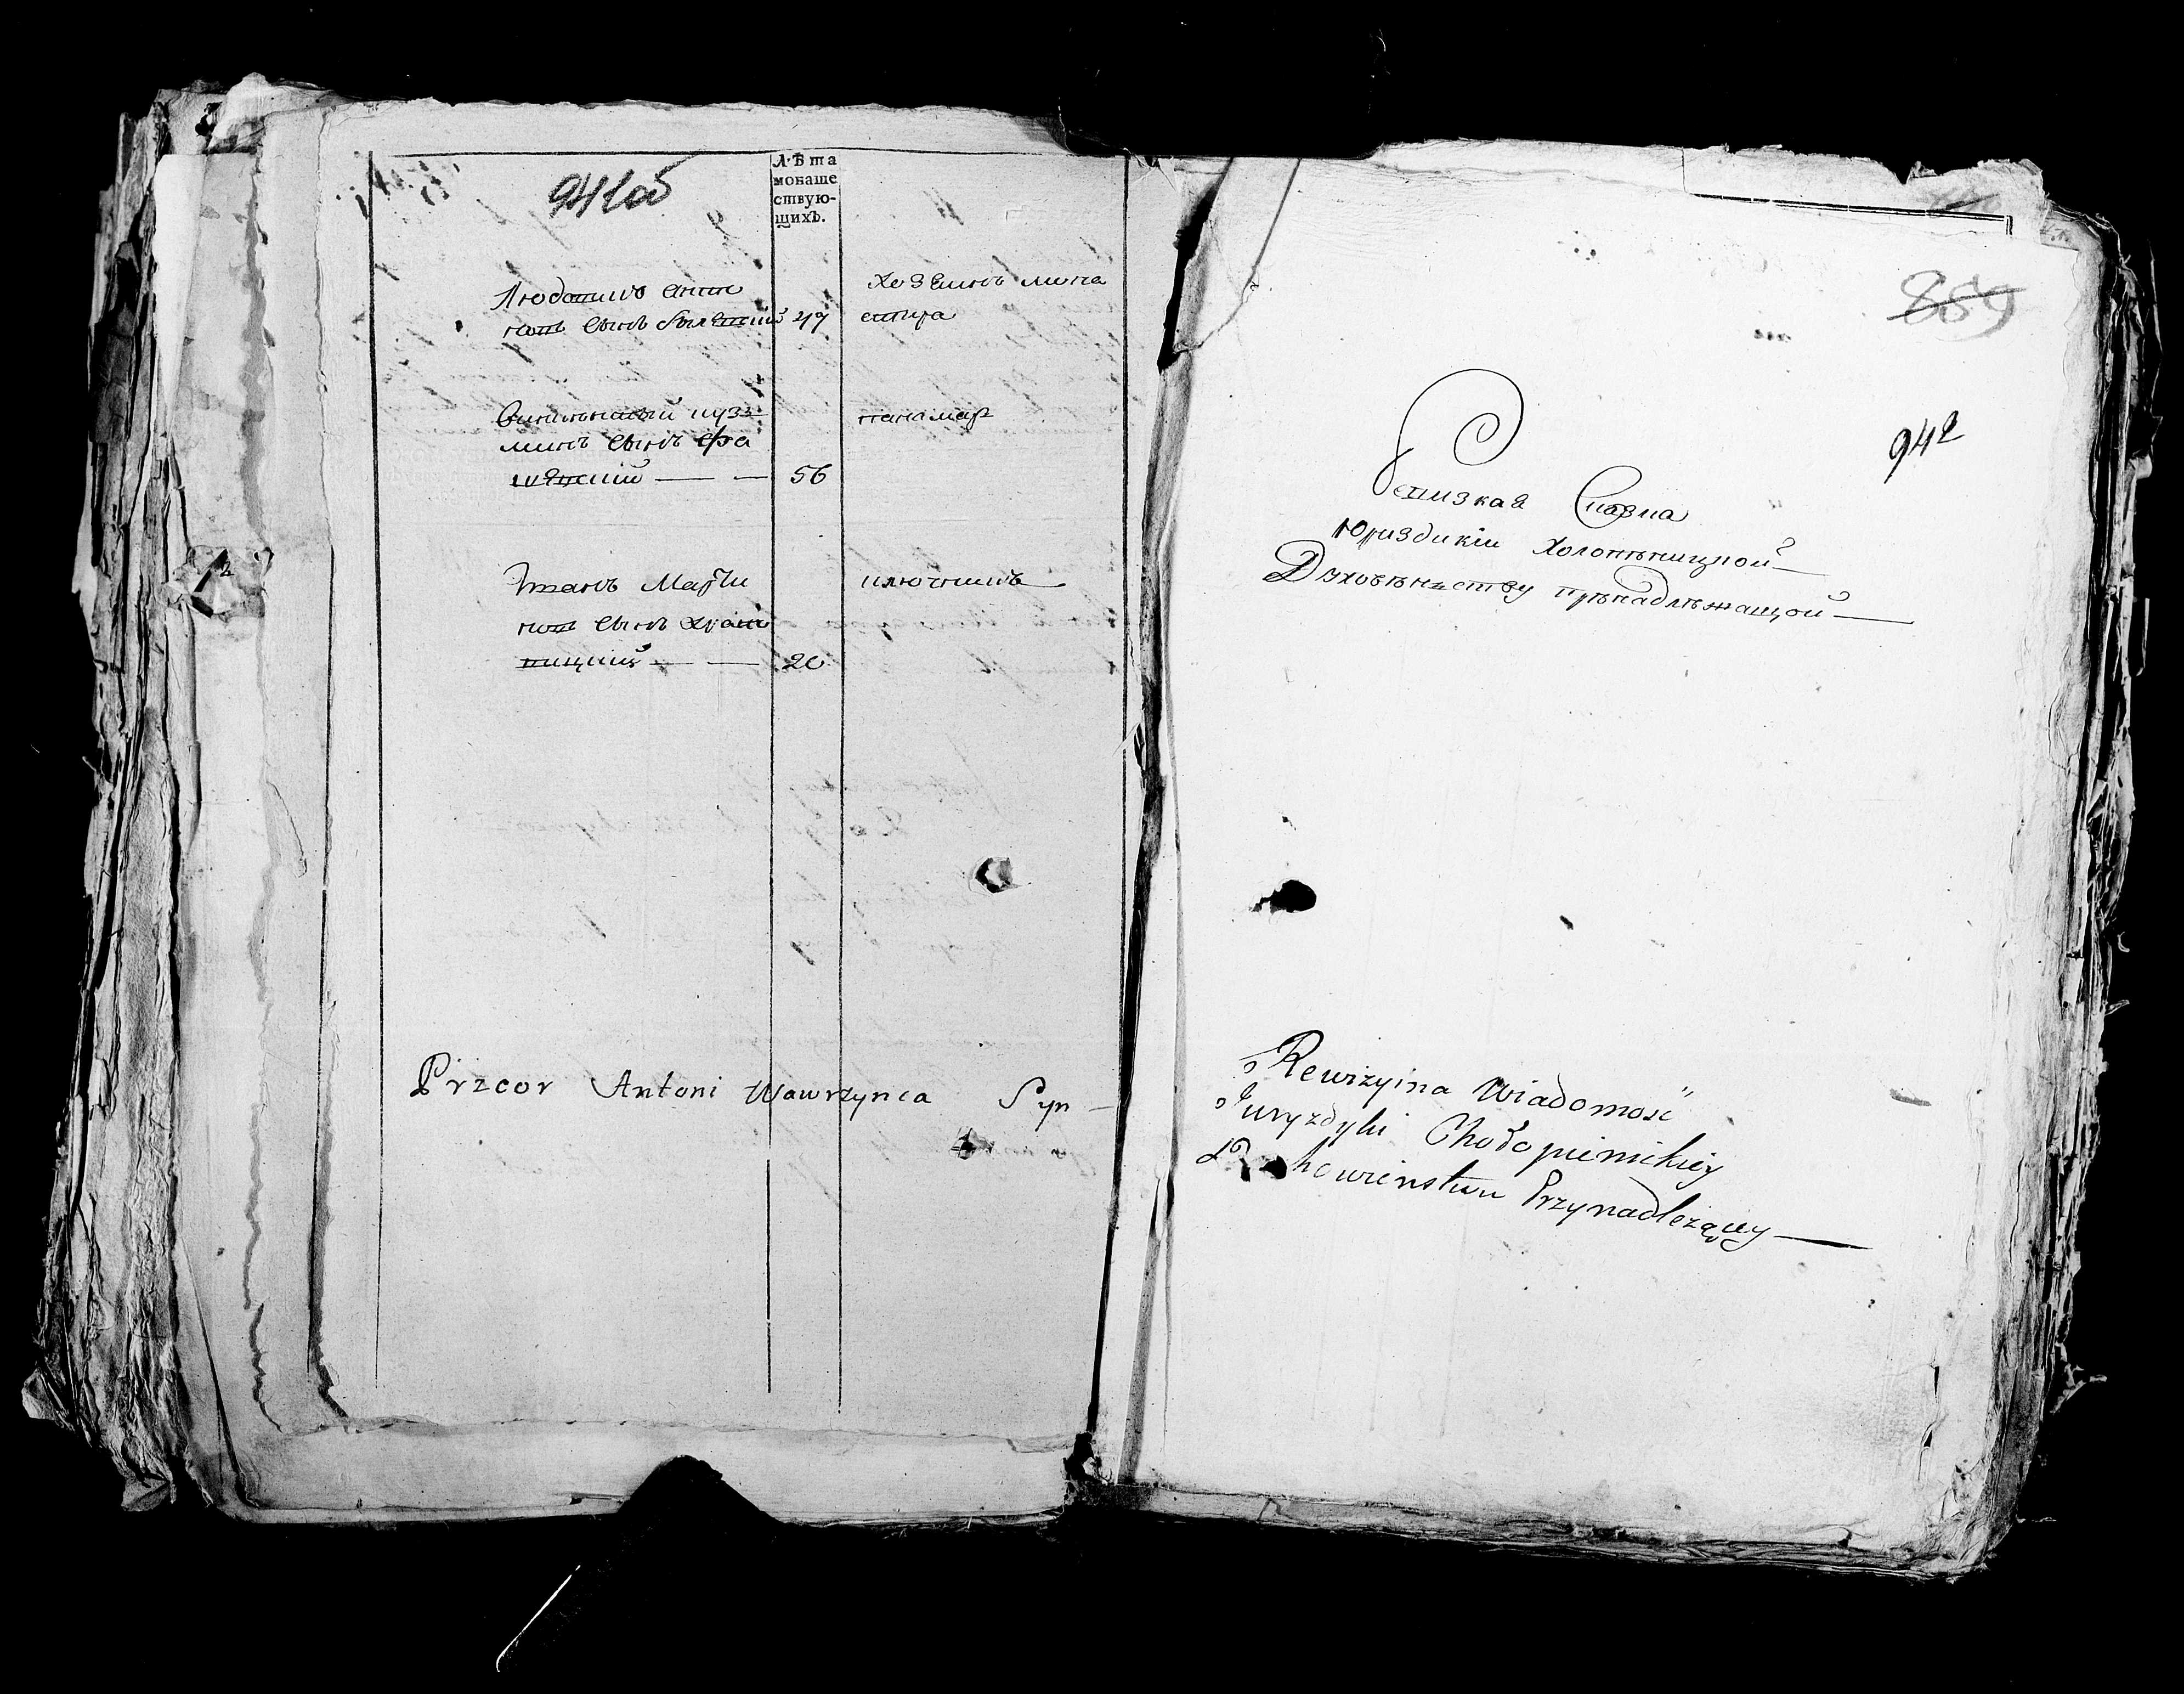 941об
Лѣта
монаше
ствую-
щихъ.
Людвикъ Анто
новъ сынъ 47
Хозеинъ мона
стира
сынъ
56
панамар
Иванъ Марти
новъ сынъ
20
ключникъ
Przeor Antoni Wawrzynca Syn
859
942
Ревизкая Сказка
Юриздикіи Холопѣницкой
Духовѣнству прѣнадлѣжащой
Rewizyina Wiadomość
Juryzdyki Chołopienickiey
Duchowienstwu Przynadleżącey